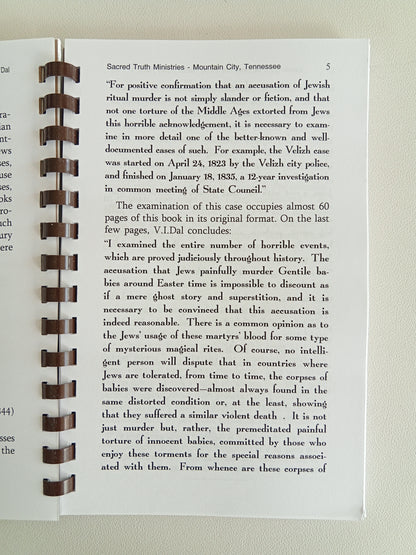 'Dal
ra-
ian
nt-
ws
es,
use
ses,
oks
ro-
uch
ury
ere
44)
sses
the
Sacred Truth Ministries - Mountain City, Tennessee 5
"For positive confirmation that an accusation of Jewish
ritual murder is not simply slander or fiction, and that
not one torture of the Middle Ages extorted from Jews
this horrible acknowledgement, it is necessary to exam-
ine in more detail one of the better-known and well-
documented eases of such. For example, the Velizh case
was started on April 24, 1823 by the Velizh city police,
and finished on January 18, 1835, a 12-year investigation
in common meeting of State Council."
The examination of this case occupies almost 60
pages of this book in its original format. On the last
few pages, V.I.Dal concludes:
"I examined the entire number of horrible events,
which are proved judiciously throughout history. The
accusation that Jews painfully murder Gentile ba-
bies around Easter time is impossible to discount as
if a mere ghost story and superstition, and it is
necessary to be convinced that this accusation is
indeed reasonable. There is a common opinion as to
the Jews' usage of these martyrs' blood for some type
of mysterious magical rites. Of course, no intelli-
gent person will dispute that in countries where
Jews are tolerated, from time to time, the corpses of
babies were discovered—almost always found in the
same distorted condition or, at the least, showing
that they suffered a similar violent death . It is not
just murder but, rather, the premeditated painful
torture of innocent babies, committed by those who
enjoy these torments for the special reasons associ-
ated with them. From whence are these corpses of